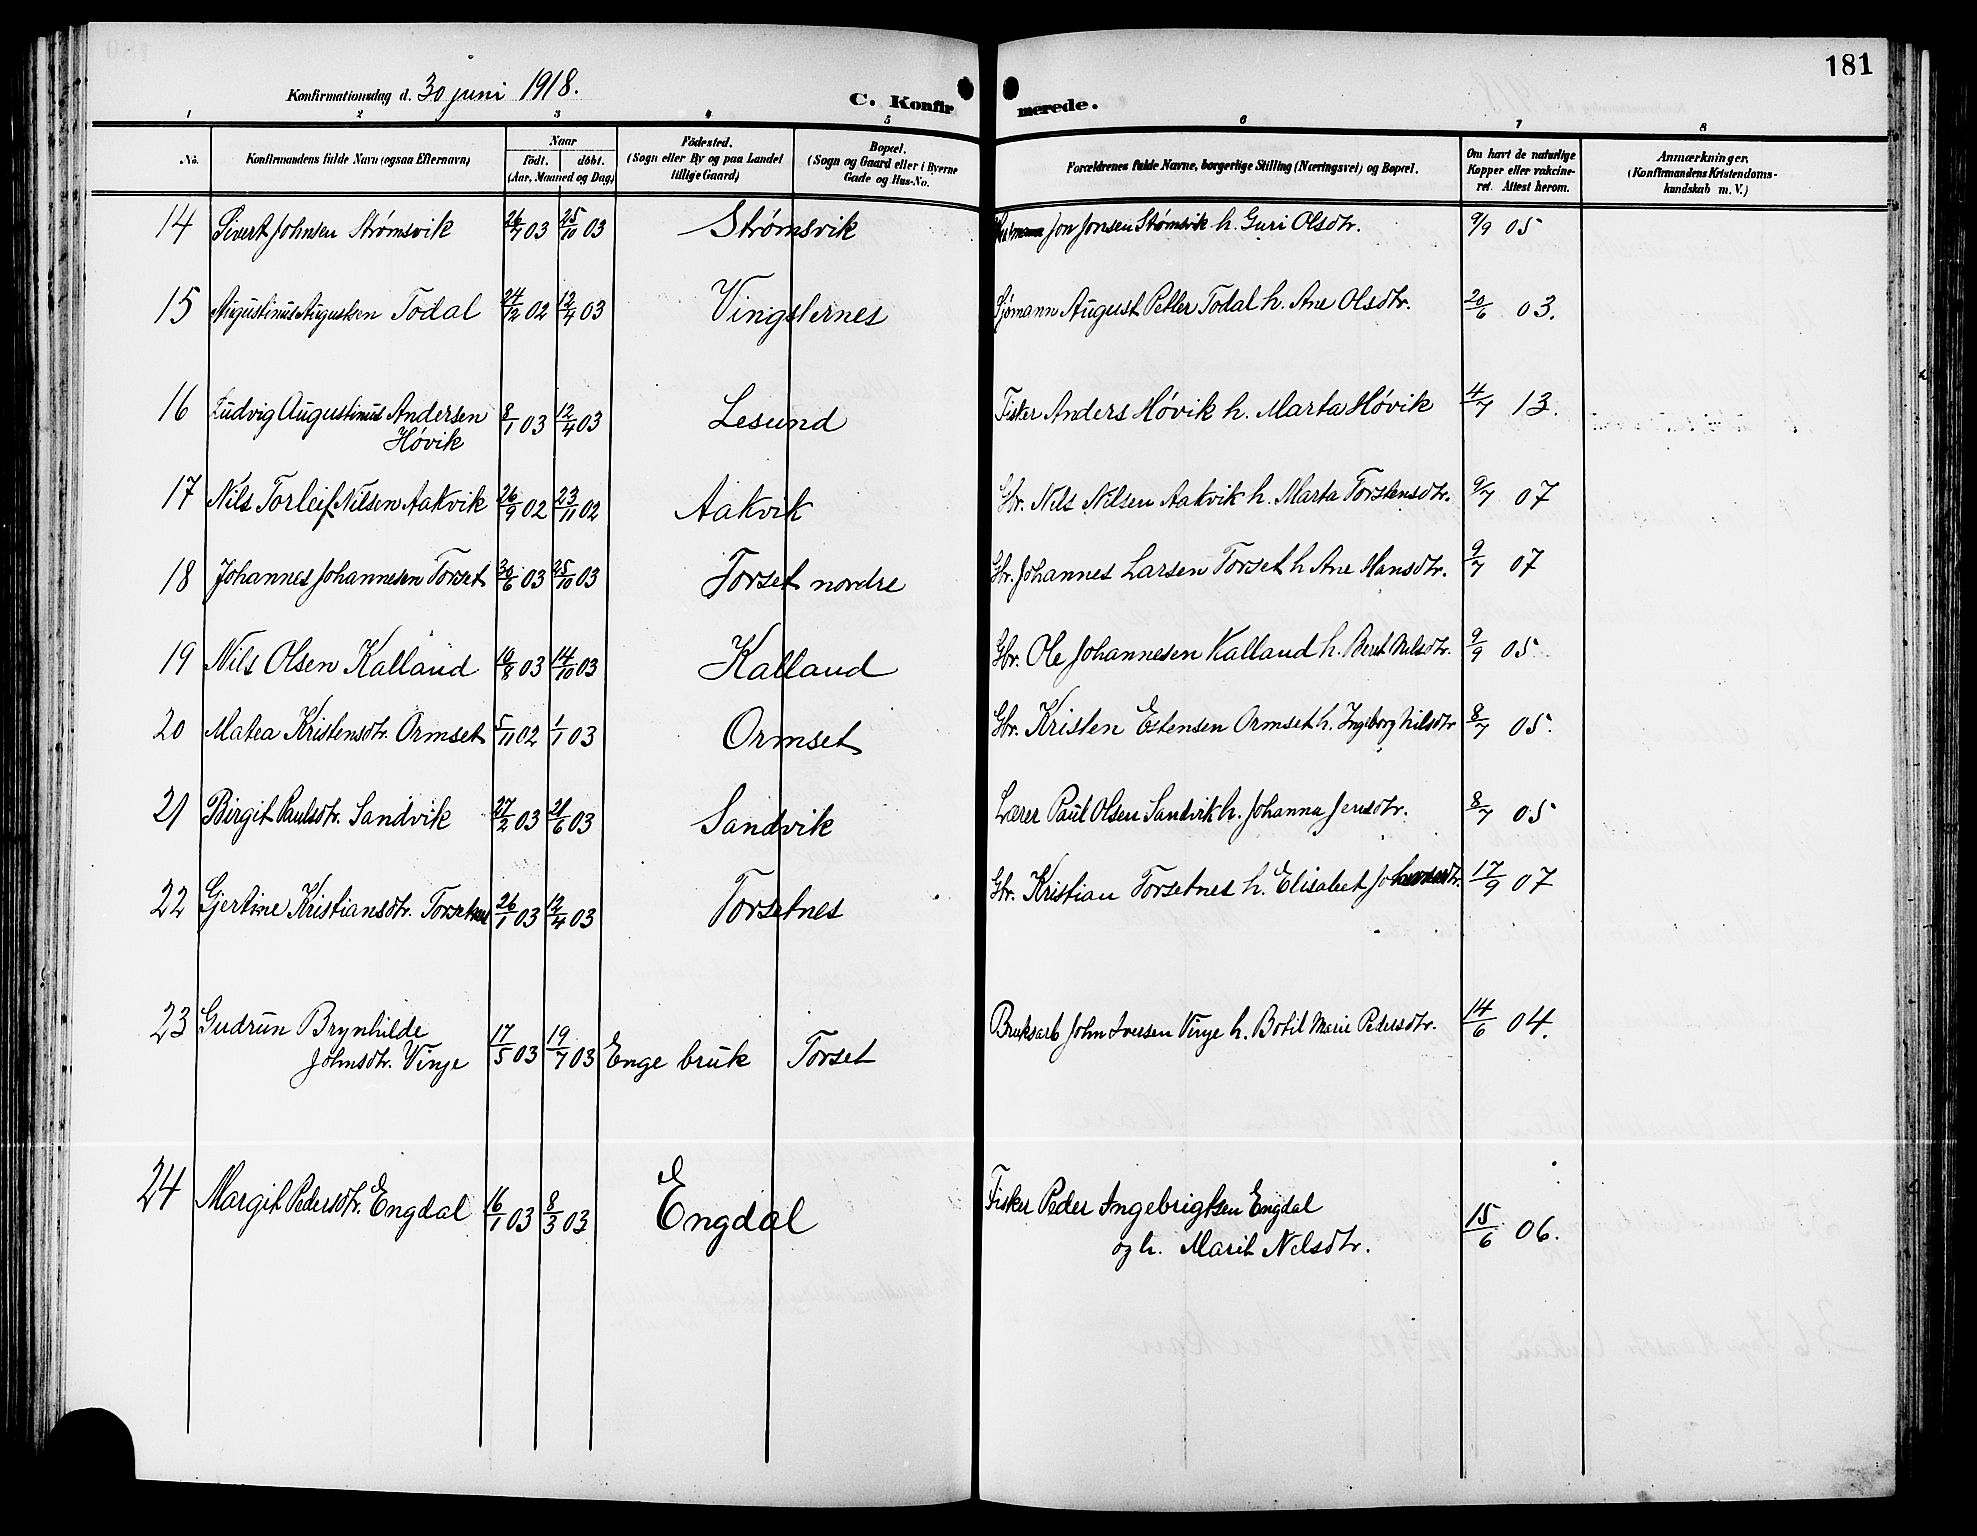 181
Konfirmationsdag d. 30 juni 1918.
C. Konfirmerede.
1 2 3 4 5 6 7 8
No. Konfirmandens fulde Navn (ogsaa Efternavn)
Naar
födt. döbt.
(Aar, Maaned og Dag)
Födested.
(Sogn eller By og paa Landet
tillige Gaard)
Bopæl.
(Sogn og Gaard eller i Byerne
Gade og Hus-No.
Forældrenes fulde Navne, borgerlige Stilling (Næringsvei) og Bopæl.
Om havt de naturlige
Kopper eller vakcine-
ret. Attest herom.
Anmærkninger.
(Konfirmandens Kristendoms-
kundskab m. V.)
14 Sivert Johnsen Strømsvik 26/7 03 25/10 03 Strømsvik Jon Jonsen Stømsvik h. Guri Olsdtr. 9/9 05
15 Augustinus Augustsen Todal 24/12 02 12/4 03 Vingsternes Sjømann August Petter Todal h. Ane Olsdtr. 20/6 03.
16 Ludvig Augustinus Andersen 8/1 03 12/4 03 Lesund Fisker Anders Høvik h. Marta Høvik 4/7 13.
Høvik
17 Nils Torleif Nilsen Aakvik 26/9 02 23/11 02 Aakvik Gbr. Nils Nilsen Aakvik h. Marta Torstensdtr. 9/7 07
18 Johannes Johannesen Torset 30/6 03 25/10 03 Torset nordre Gbr. Johannes Larsen Torset h Ane Hansdtr. 9/7 07
19 Nils Olsen Kalland 19/8 03 14/10 03 Kalland Gbr. Ole Johannesen Kalland h. Beret Nilsdtr. 9/9 05
20 Matea Kristensdtr. Ormset 5/11 02 1/1 03 Ormset Gbr. Kristen Estensen Ormset h. Ingeborg Nilsdtr 8/7 05.
21 Birgit Paulsdtr. Sandvik 27/2 03 21/6 03 Sandvik Lærer Paul Olsen Sandvik h. Johanna Jensdtr. 8/7 05
22 Gjertine Kristiansdtr. Torsetnes 26/1 03 12/4 03 Torsetnes Gbr. Kristian Torsetnes h. Elisabet 17/9 07
23 Gudrun Brynhilde 17/5 03 19/7 03 Enge bruk Torset Bruksarb John Iversen Vinje h. Botil Marie Pedersdtr. 14/6 04.
Johnsdtr. Vinje
24 Margit Pedersdtr. Engdal 16/1 03 8/3 03 Engdal Fisker Peder Ingebrigtsen Engdal 15/6 06.
og h. Marit Nelsdtr.